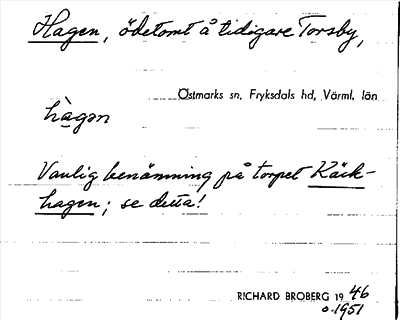 Hagen, ödetomt å tidigare Torsby,
Östmarks sn, Fryksdals hd, Värml. län
hàgən
Vanlig benämning på torpet Käck-
hagen; se detta!
RICHARD BROBERG 19 46
o. 1951